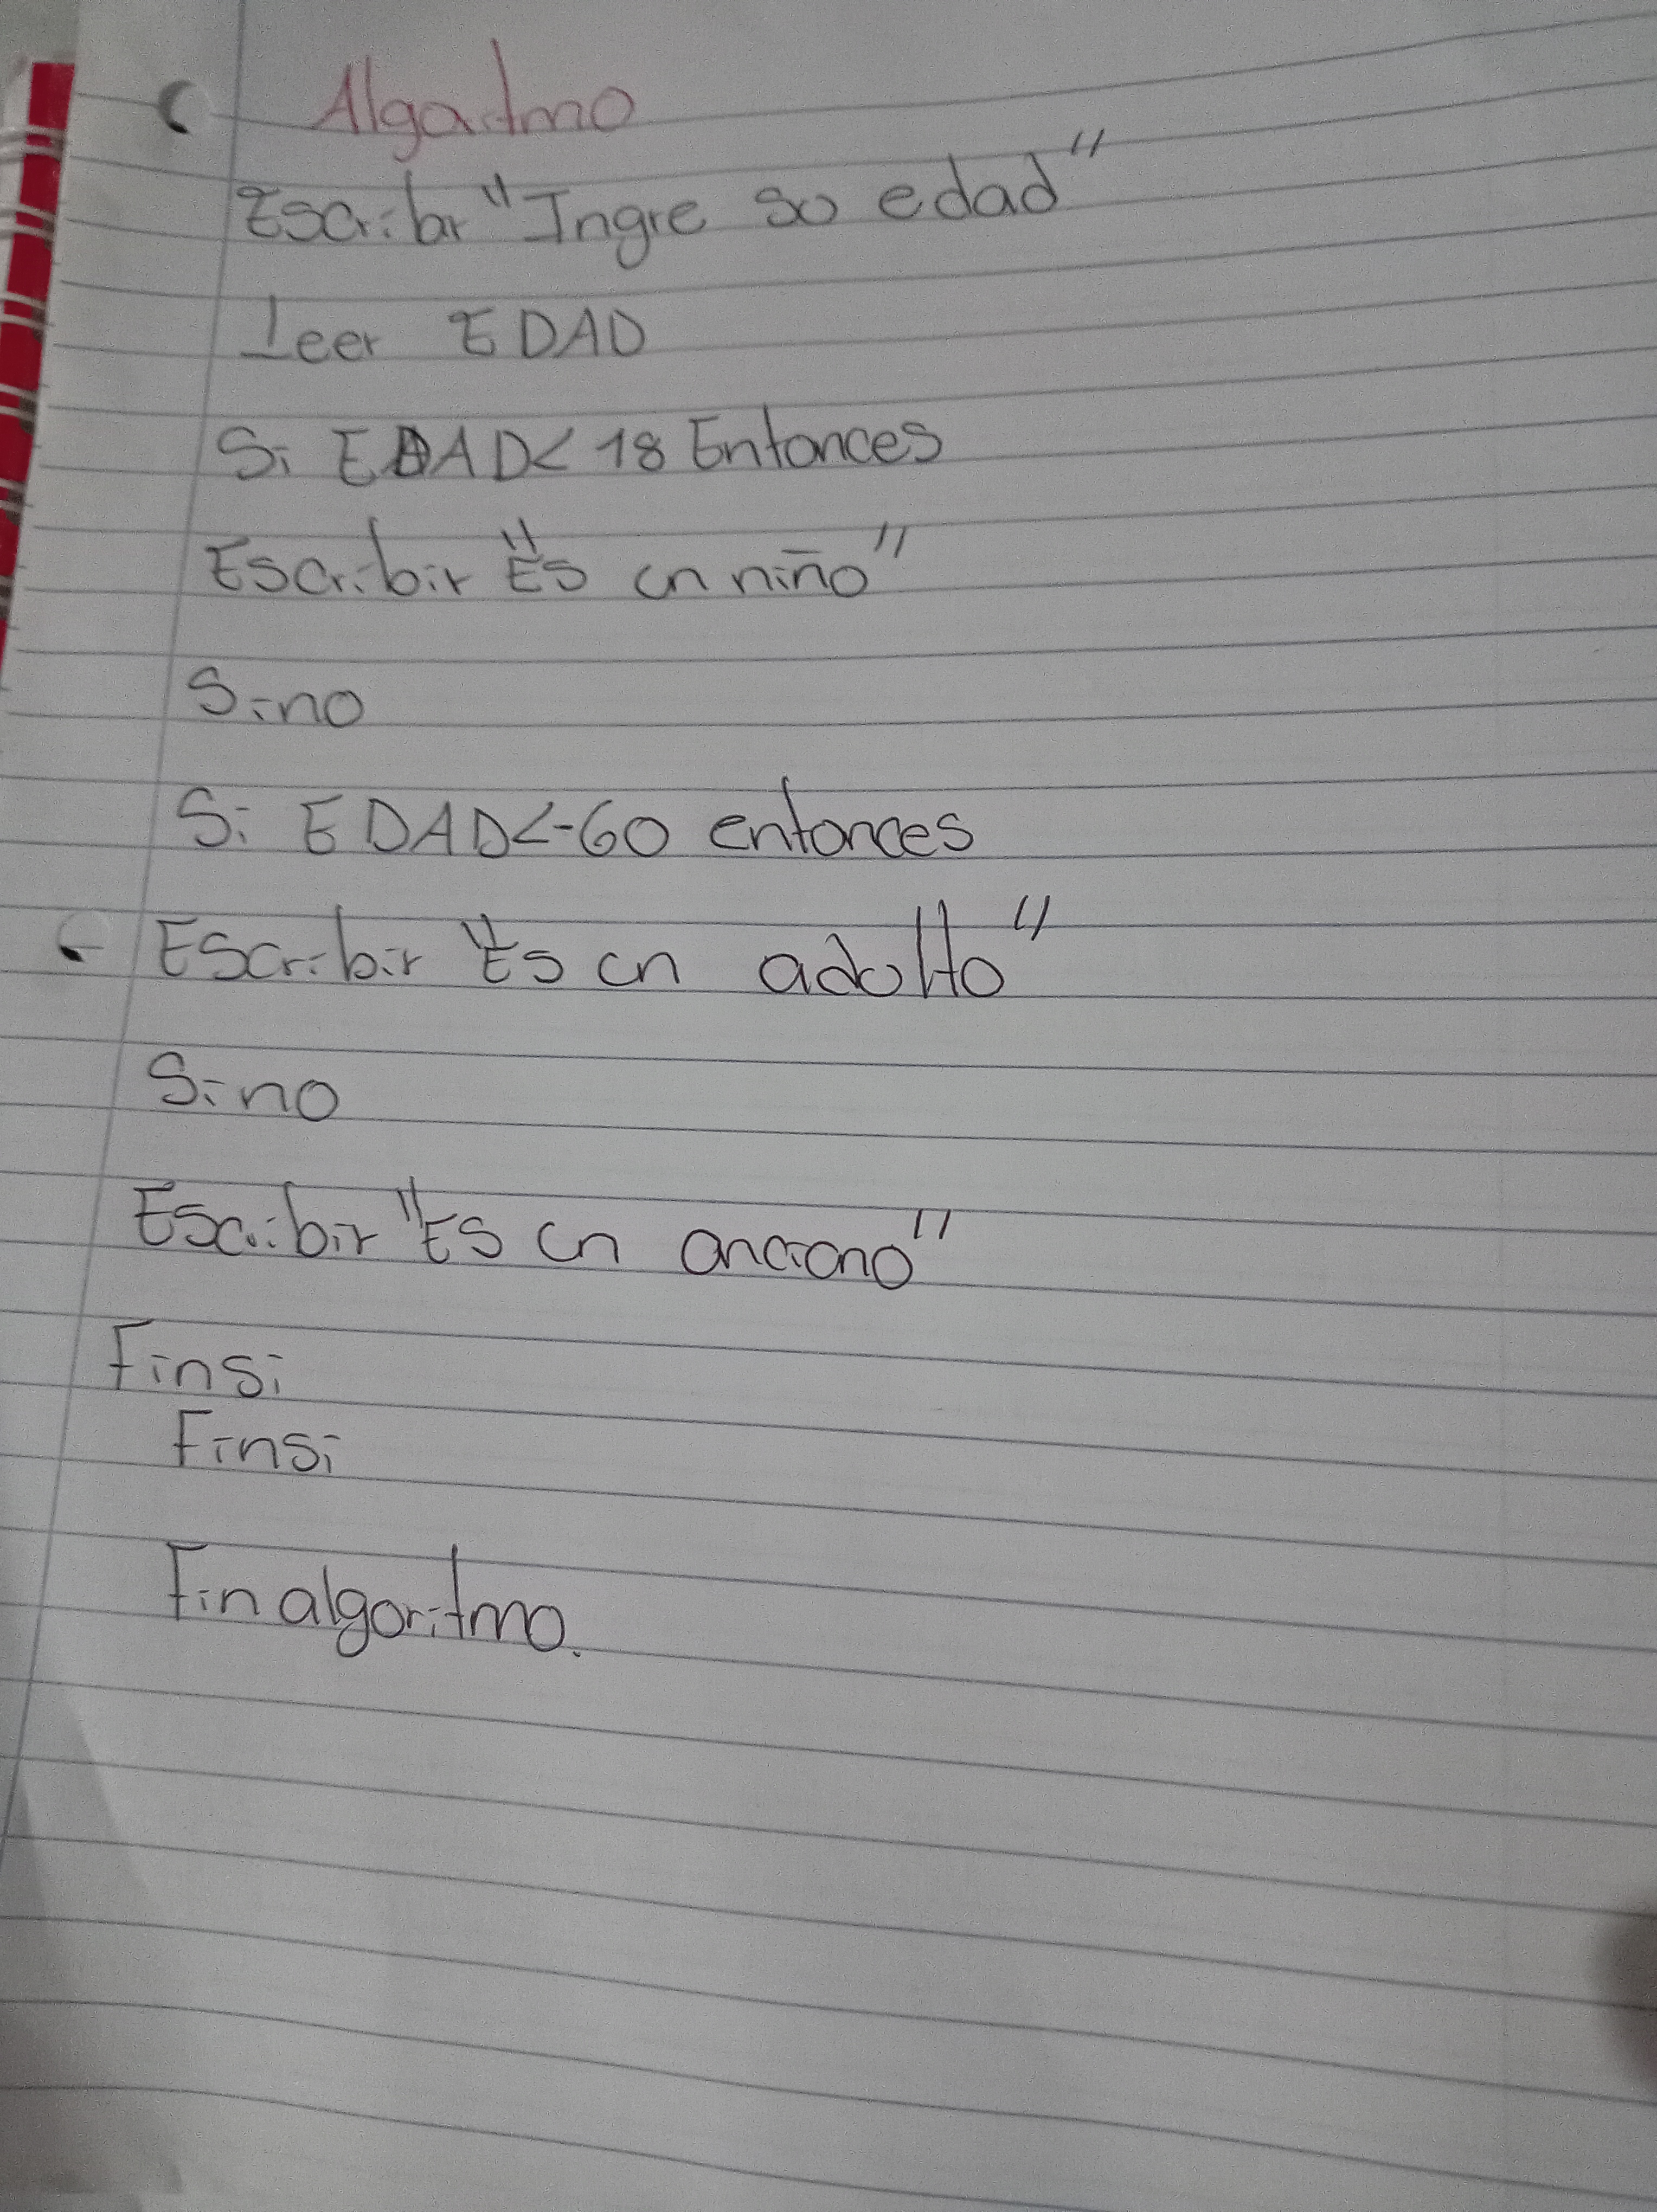 Algoritmo
Escribr "Ingre su edad"
Leer EDAD
Si EDAD< 18 Entonces
Escribir "Es un niño"
Sino
Si EDAD<-60 entonces
Escribir "Es un adulto"
Sino
Escribir "Es un anciano"
Finsi
Finsi
Fin algoritmo.